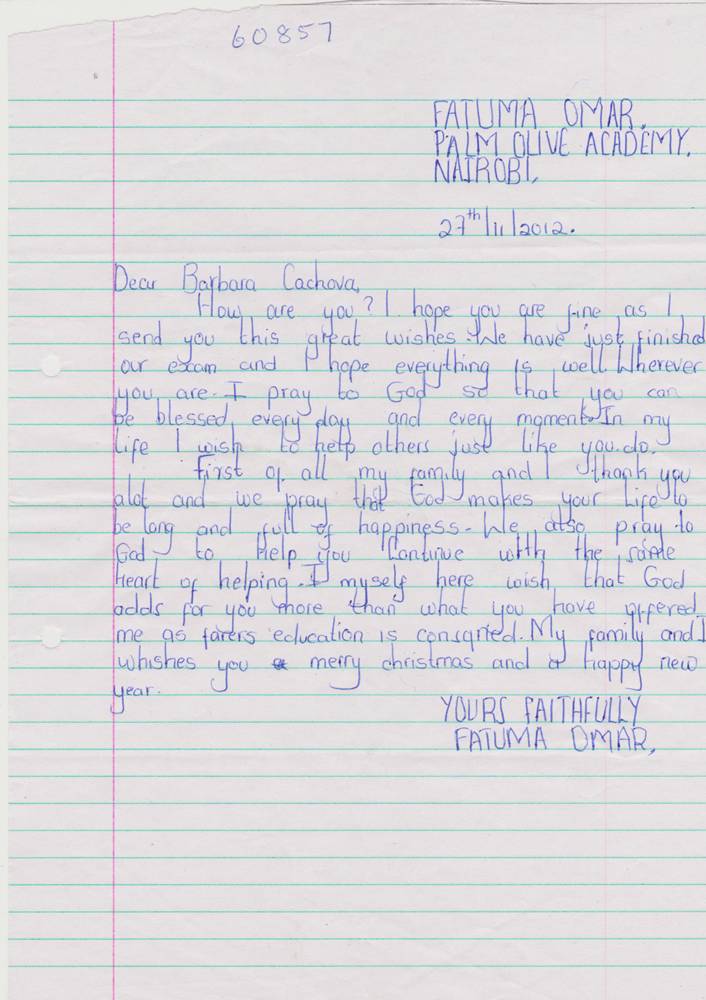 60857
FATUMA OMAR.
PALM OLIVE ACADEMY.
NAIROBI.
27th/11/2012.
Dear Barbara Cachova,
How are you? I hope you are fine as I
send you this great wishes. We have just finished
our exam and I hope everything is well Wherever
you are. I pray to God so that you can
be blessed every day and every moment. In my
life I wish to help others just like you do.
First of all my family and I thank you
alot and we pray that God makes your life to
be long and full of happiness. We also pray to
God to Help you Continue with the same
Heart of helping. I myself here wish that God
adds for you more than what you have offered
me as farers education is consqried. My family and I
whishes you a merry christmas and a happy new
year.
YOURS FAITHFULLY
FATUMA OMAR.